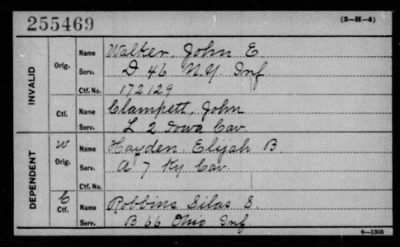 255469
(3-H-4)
INVALID
Orig. Name Walker, John E
Serv. D 46 N.Y. Inf
Ctf. No. 172129
Ctf. Name Clampett, John
Serv. L 2 Iowa Cav.
DEPENDENT
W Orig. Name Hayden, Elijah B.
Serv. A 7 Ky Cav.
Ctf. No.
C Ctf. Name Robbins Silas S.
Serv. B 66 Ohio Inf
6-1308